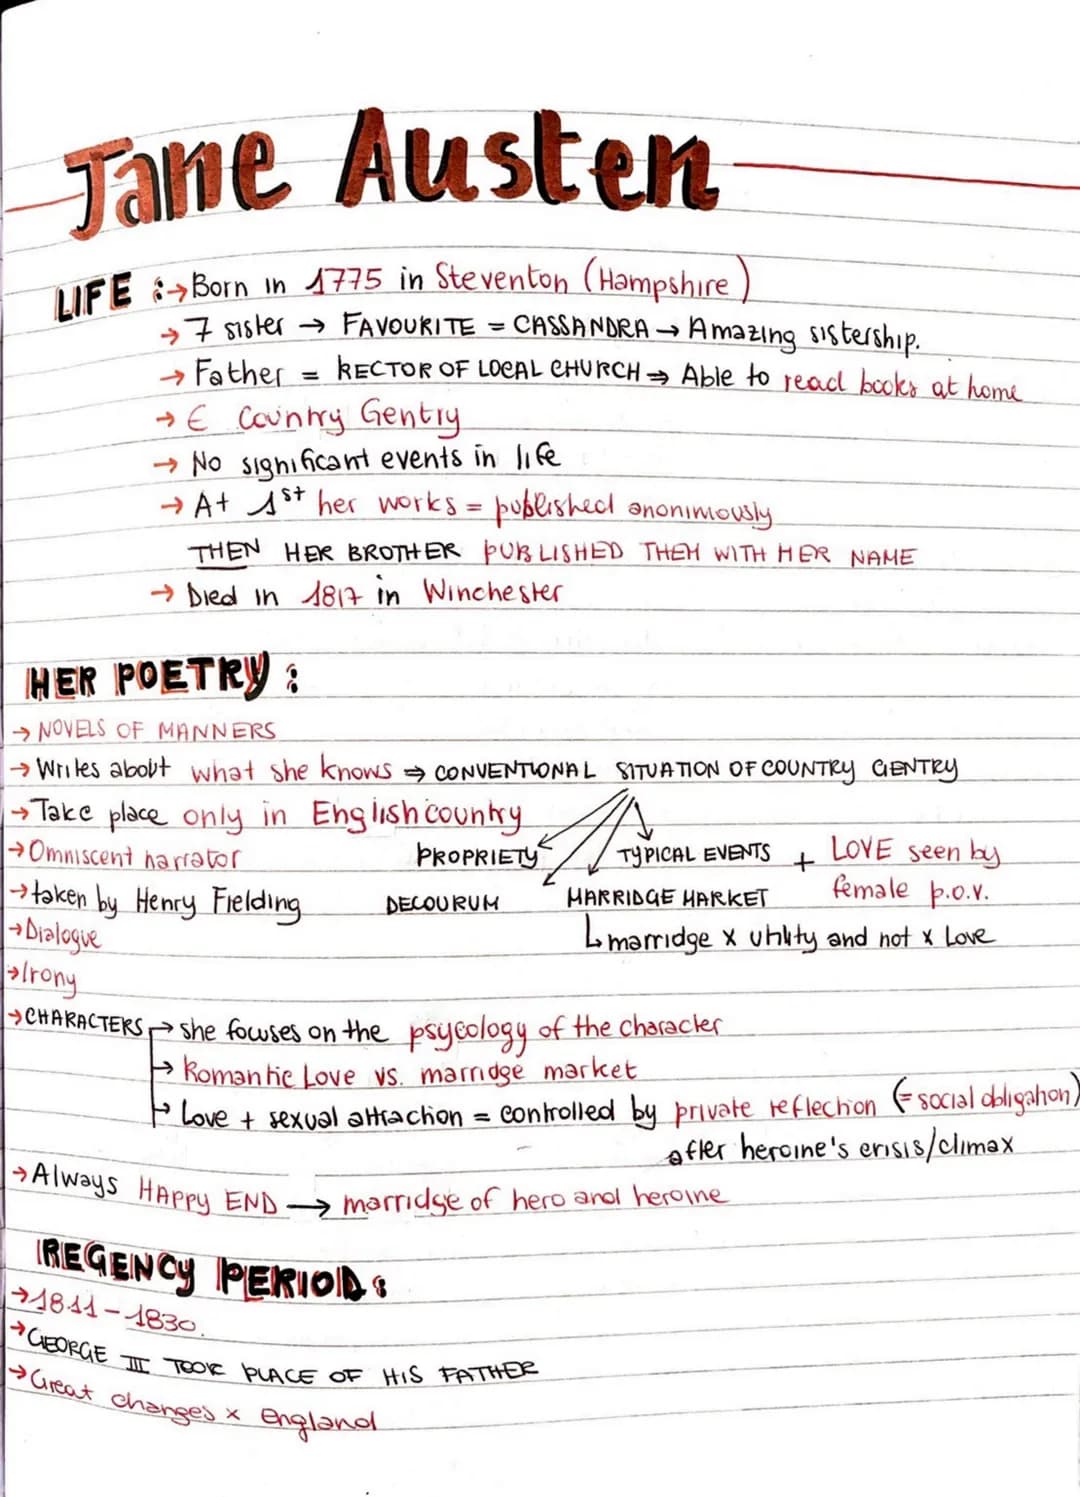 Jane Austen
LIFE :→ Born in 1775 in Steventon (Hampshire)
→ 7 sister → FAVOURITE = CASSANDRA → Amazing sistership.
→ Father = RECTOR OF LOCAL CHURCH ⇒ Able to read books at home
→ ∈ Country Gentry
→ No significant events in life
→ At 1st her works = published anonimously
THEN HER BROTHER PUBLISHED THEM WITH HER NAME
→ Died in 1817 in Winchester
HER POETRY :
→ NOVELS OF MANNERS
→ Writes about what she knows ⇒ CONVENTIONAL SITUATION OF COUNTRY GENTRY
→ Take place only in English country
→ Omniscent harrator PROPRIETY TYPICAL EVENTS + LOVE seen by
→ taken by Henry Fielding DECOURUM MARRIDGE MARKET female p.o.v.
→ Dialogue ↳ marridge x utility and not x Love
→ Irony
→ CHARACTERS → she focuses on the psycology of the character
→ Romantic Love vs. marridge market
→ Love + sexual attraction = controlled by private reflection (= social obligation)
after heroine's crisis/climax
→ Always HAPPY END → marridge of hero and heroine
REGENCY PERIOD :
→ 1811 - 1830.
→ GEORGE III TOOK PLACE OF HIS FATHER
→ Great changes x england